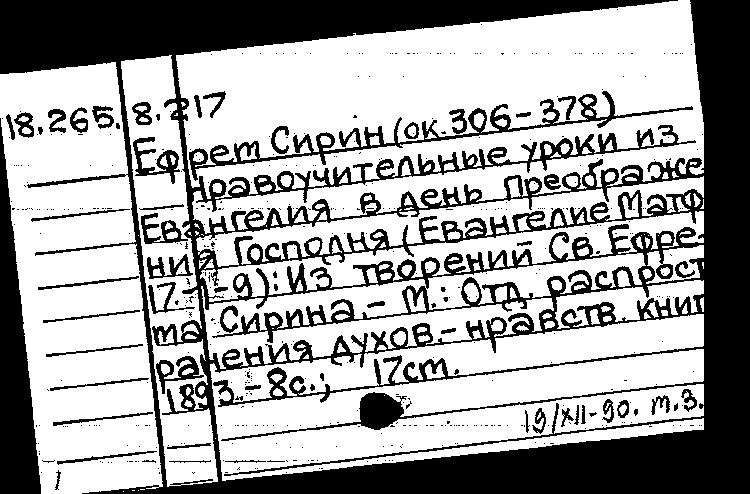 18.265.8.217
Ефрем Сирин (ок. 306-378)
Нравоучительные уроки из
Евангелия в день преображе
ния Господня (Евангелие Матф
17.-1-9): Из творений Св. Ефре-
ма Сирина. - М.: Отд. распрост
ранения духов.-нравств. книг
1893. - 8с.; 17см.
19/XII-90. м.з.
1